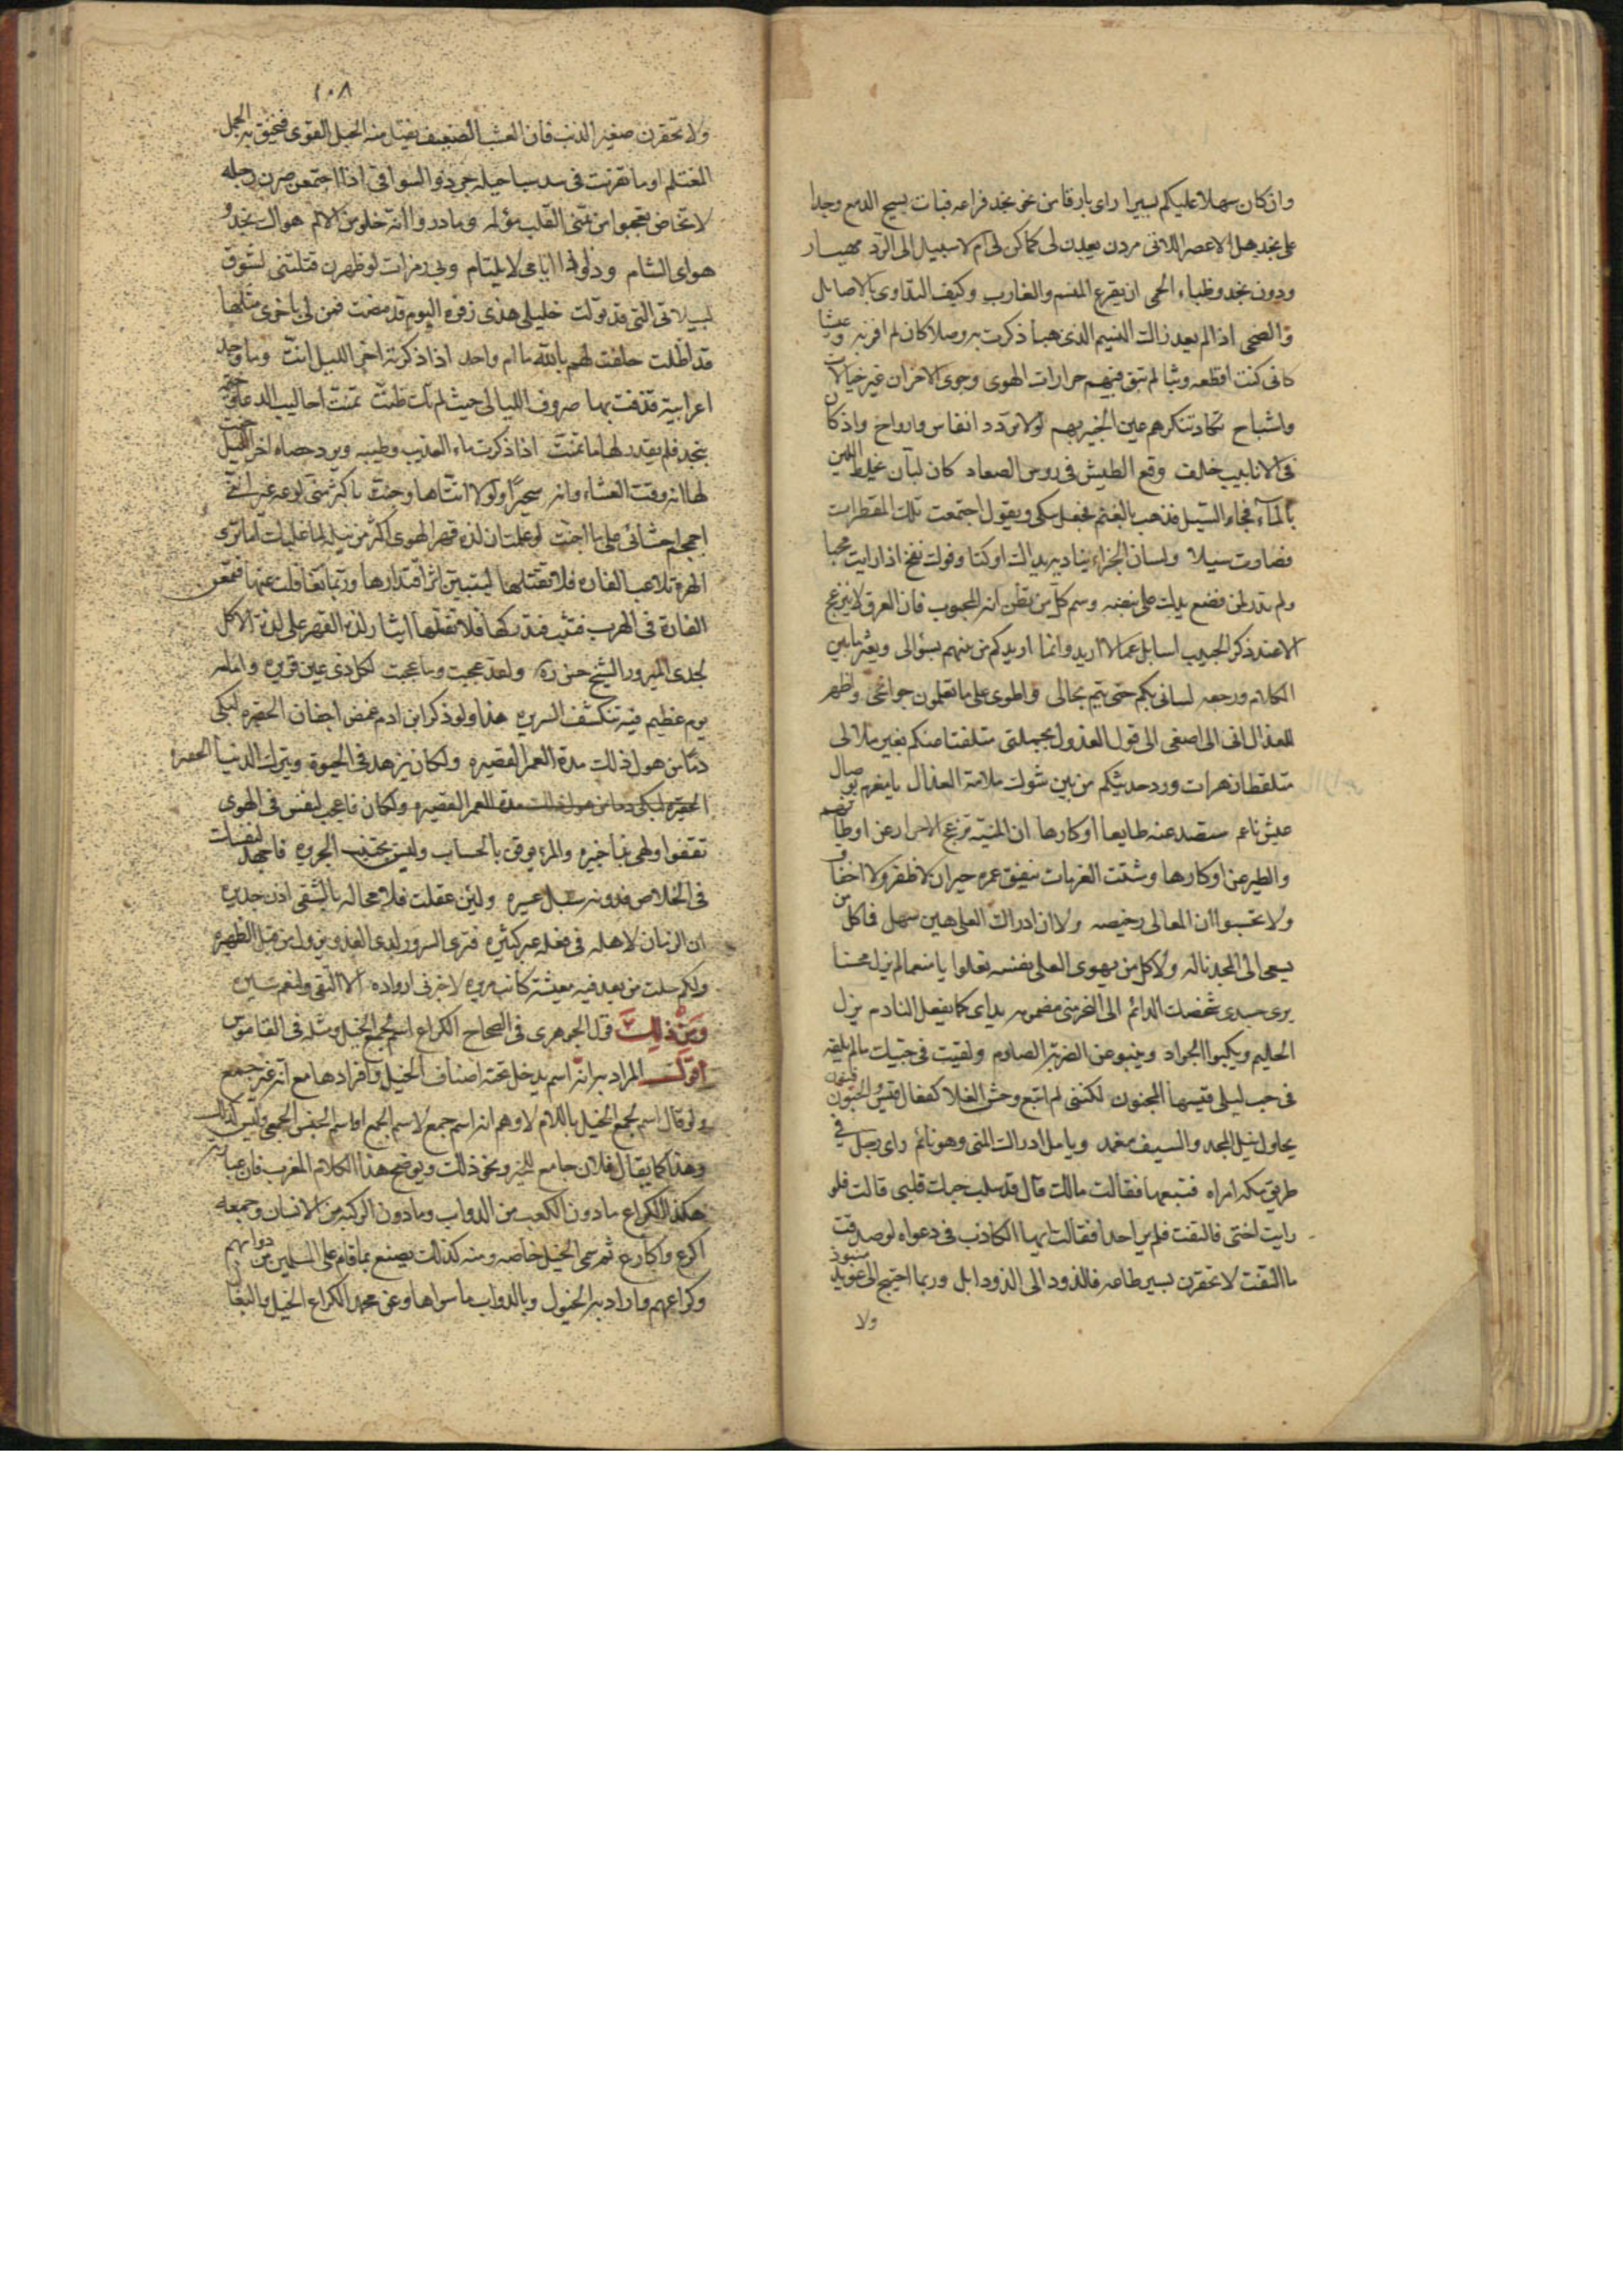 وان كان سهلا عليكم يسيرا راى بارقا من نحو نجد فراعه فبات يسح الدمع وجدا
على نجد هل الاعصر اللاتى مردن يعدن لى كما كن لى ام لا سبيل الى الرد مهيار
ودون نجد وظباء الحمى ان يقرع المنسم والغارب وكيف التداوى بالاصايل
والضحى اذا لم يعد ذاك النسيم الذى هبا ذكرت به وصلا كان لم افز به وعيشا
كانى كنت اقطعه وثبا لم تبق فيهم حرارات الهوى وجوى الاحزان غير خيالات
واشباح تكاد تنكرهم عين الخبير بهم لولا تردد انفاس وارواح واذ كان
فى الانابيب خلف وقع الطيش فى روس الصعاد كان لبان يخلط اللبن
بالماء فجاء السيل فذهب بالغنم فجعل يبكى ويقول اجتمعت تلك القطرات
فصارت سيلا ولسان الجزاء يناديه يداك اوكتا وفوك نفخ اذا رايت محبا
ولم تدر لمن فضع يدك على نبضه وسم كل من تظن انه المحبوب فان العرق لا ينزعج
الا عند ذكر الحبيب اسايل عما لا اريد وانما اريدكم من بينهم بسؤالى ويعثر ما بين
الكلام ورجعه لسانى بكم حتى يتم بحالى واطوى على ما تعلمون جوانحى واظهر
للعذال انى الى اصغى الى قول العذول بجملتى متلفتا منكم بغير ملال
متلقطا زهرات ورد حديثكم من بين شوك ملامة العذال يا مغرم بوصال
عيش ناعم ستصد عنه طايعا او كارها ان المنية تزعج الاسرار عن اوطانهم
والطير عن اوكارها وشتت الغربات ينفق عمره حيران لا ظفر ولا اخفاق
ولا تحسبوا ان المعالى رخيصه ولا ان ادراك العلى هين سهل فما كل من
يسعى الى المجد ناله ولا كل من يهوى العلى نفسه تعلوا يا منعما لم يزل محسنا
الحليم ويكبوا الجواد وينبو عن الضربة الصارم ولقيت فى حبيك ما لم يلقه
فى حب ليلى قيسها المجنون لكننى لم اتبع وحش الفلا كفعال قيس والجنون فنون
يحاول نيل المجد والسيف مغمد ويامل ادراك المنى وهو نائم راى رجل فى
طريق مكه امراه فتبعها فقالت مالك قال قد سلب حبك قلبى قالت فلو
رايت اختى فالتفت فلم ير احدا فقالت ايها الكاذب فى دعواه لو صدقت
ما التفت لا تحقرن يسير طاعه فالذود الى الذود ابل وربما احتيج الى عويد منبوذ
ولا
١٠٨
ولا تحقرن صغير الذنب فان العشب الضعيف يفتل منه الحبل القوى فيخنق به الجمل
المغتلم
لا تخاض تعجبوا من تمنى القلب مؤلمه وما دروا انه خلو من الالم هواك نجد و
هواى الشام وذا وذا اياخى لا يلتام وبى زفرات لو ظهرن قتلتنى لشوق
لييلاتى التى قد تولت خليلى هذى زفرة اليوم قد مضت فمن لى باخرى مثلها
قد اظلت حلفت لهم بالله ما ام واحد اذا ذكرته اخر الليل انت وما وجد
اعرابية قذفت بها صروف الليالى حيث لم تك ظنت تمنت احاليب الدعاة وخيمة
بنجد فلم يقدر لها ما تمنت اذا ذكرت ماء العذيب وطيبه وبرد حصاه اخر الليل حنت
لها انة وقت العشاء وانه سحيرا ولولا انتاها وجنت باكثر منى لوعه غير اننى
اجمجم احشائى على ما اجنت لو علمت ان لذة قهر الهوى اكثر من نيله لما غلبك اما ترى
الهرة تلاعب الفارة فلا تقتلها ليتبين اثر اقتدارها وربما تغافلت عنها فتمعن
الفارة فى الهرب فتثب فتدركها فلا تقتلها ايثارا للذة القهر على لذة الاكل
ولقد عجبت وما عجبت لكل ذى عين قريره وامامه
يوم عظيم فيه تنكشف السريره هذا ولو ذكر ابن ادم غمض اجفان الحقيره لبكى
دما من هول ذلك مدة العمر القصيره ولكان يزهد فى الحيوة ويترك الدنيا الحقيره
الحقيره لبكى دما من هول ذلك مدة العمر القصيره ولكان فاعجب لنفس فى الهوى
تقفوا وهى بها خبيره والمرء موقن بالحساب وليس يجتنب الجريره فاجهد لنفسك
فى الخلاص فدونه سبل عسيره ولئن عقلت فلا محاله بالشقى اذن جديره
ان الزمان لاهله فى فعله عبر كثيره فترى السرور لدى الغدو
ولكم سلت من بعد فيه معيشة كانت مريره لا خير فى ازواده الا التقى
ومن ذلك قول الجوهرى فى الصحاح الكراع اسم لجمع الخيل ومثله فى القاموس
اقول المراد به انه اسم يدخل تحته اصناف الخيل وافرادها مع انه غير جمع
ولو قال اسم لجمع الخيل باللام لاوهم انه اسم جمع لاسم الجمع او اسم الجنس الجمعى وليس كذلك
وهذا كما يقال فلان جامع للخير ونحو ذلك ويوضح هذا الكلام المغرب فان عبارته
هكذا الكراع ما دون الكعب من الدواب وما دون الركبه من الانسان وجمعه
اكرع واكارع ثم سمى الخيل خاصه ومنه كذلك يصنع بما قام على المسلمين من دوابهم
وكراعهم واراد به الخيول وبالدواب ما سواها وعن محمد الكراع الخيل والبغال